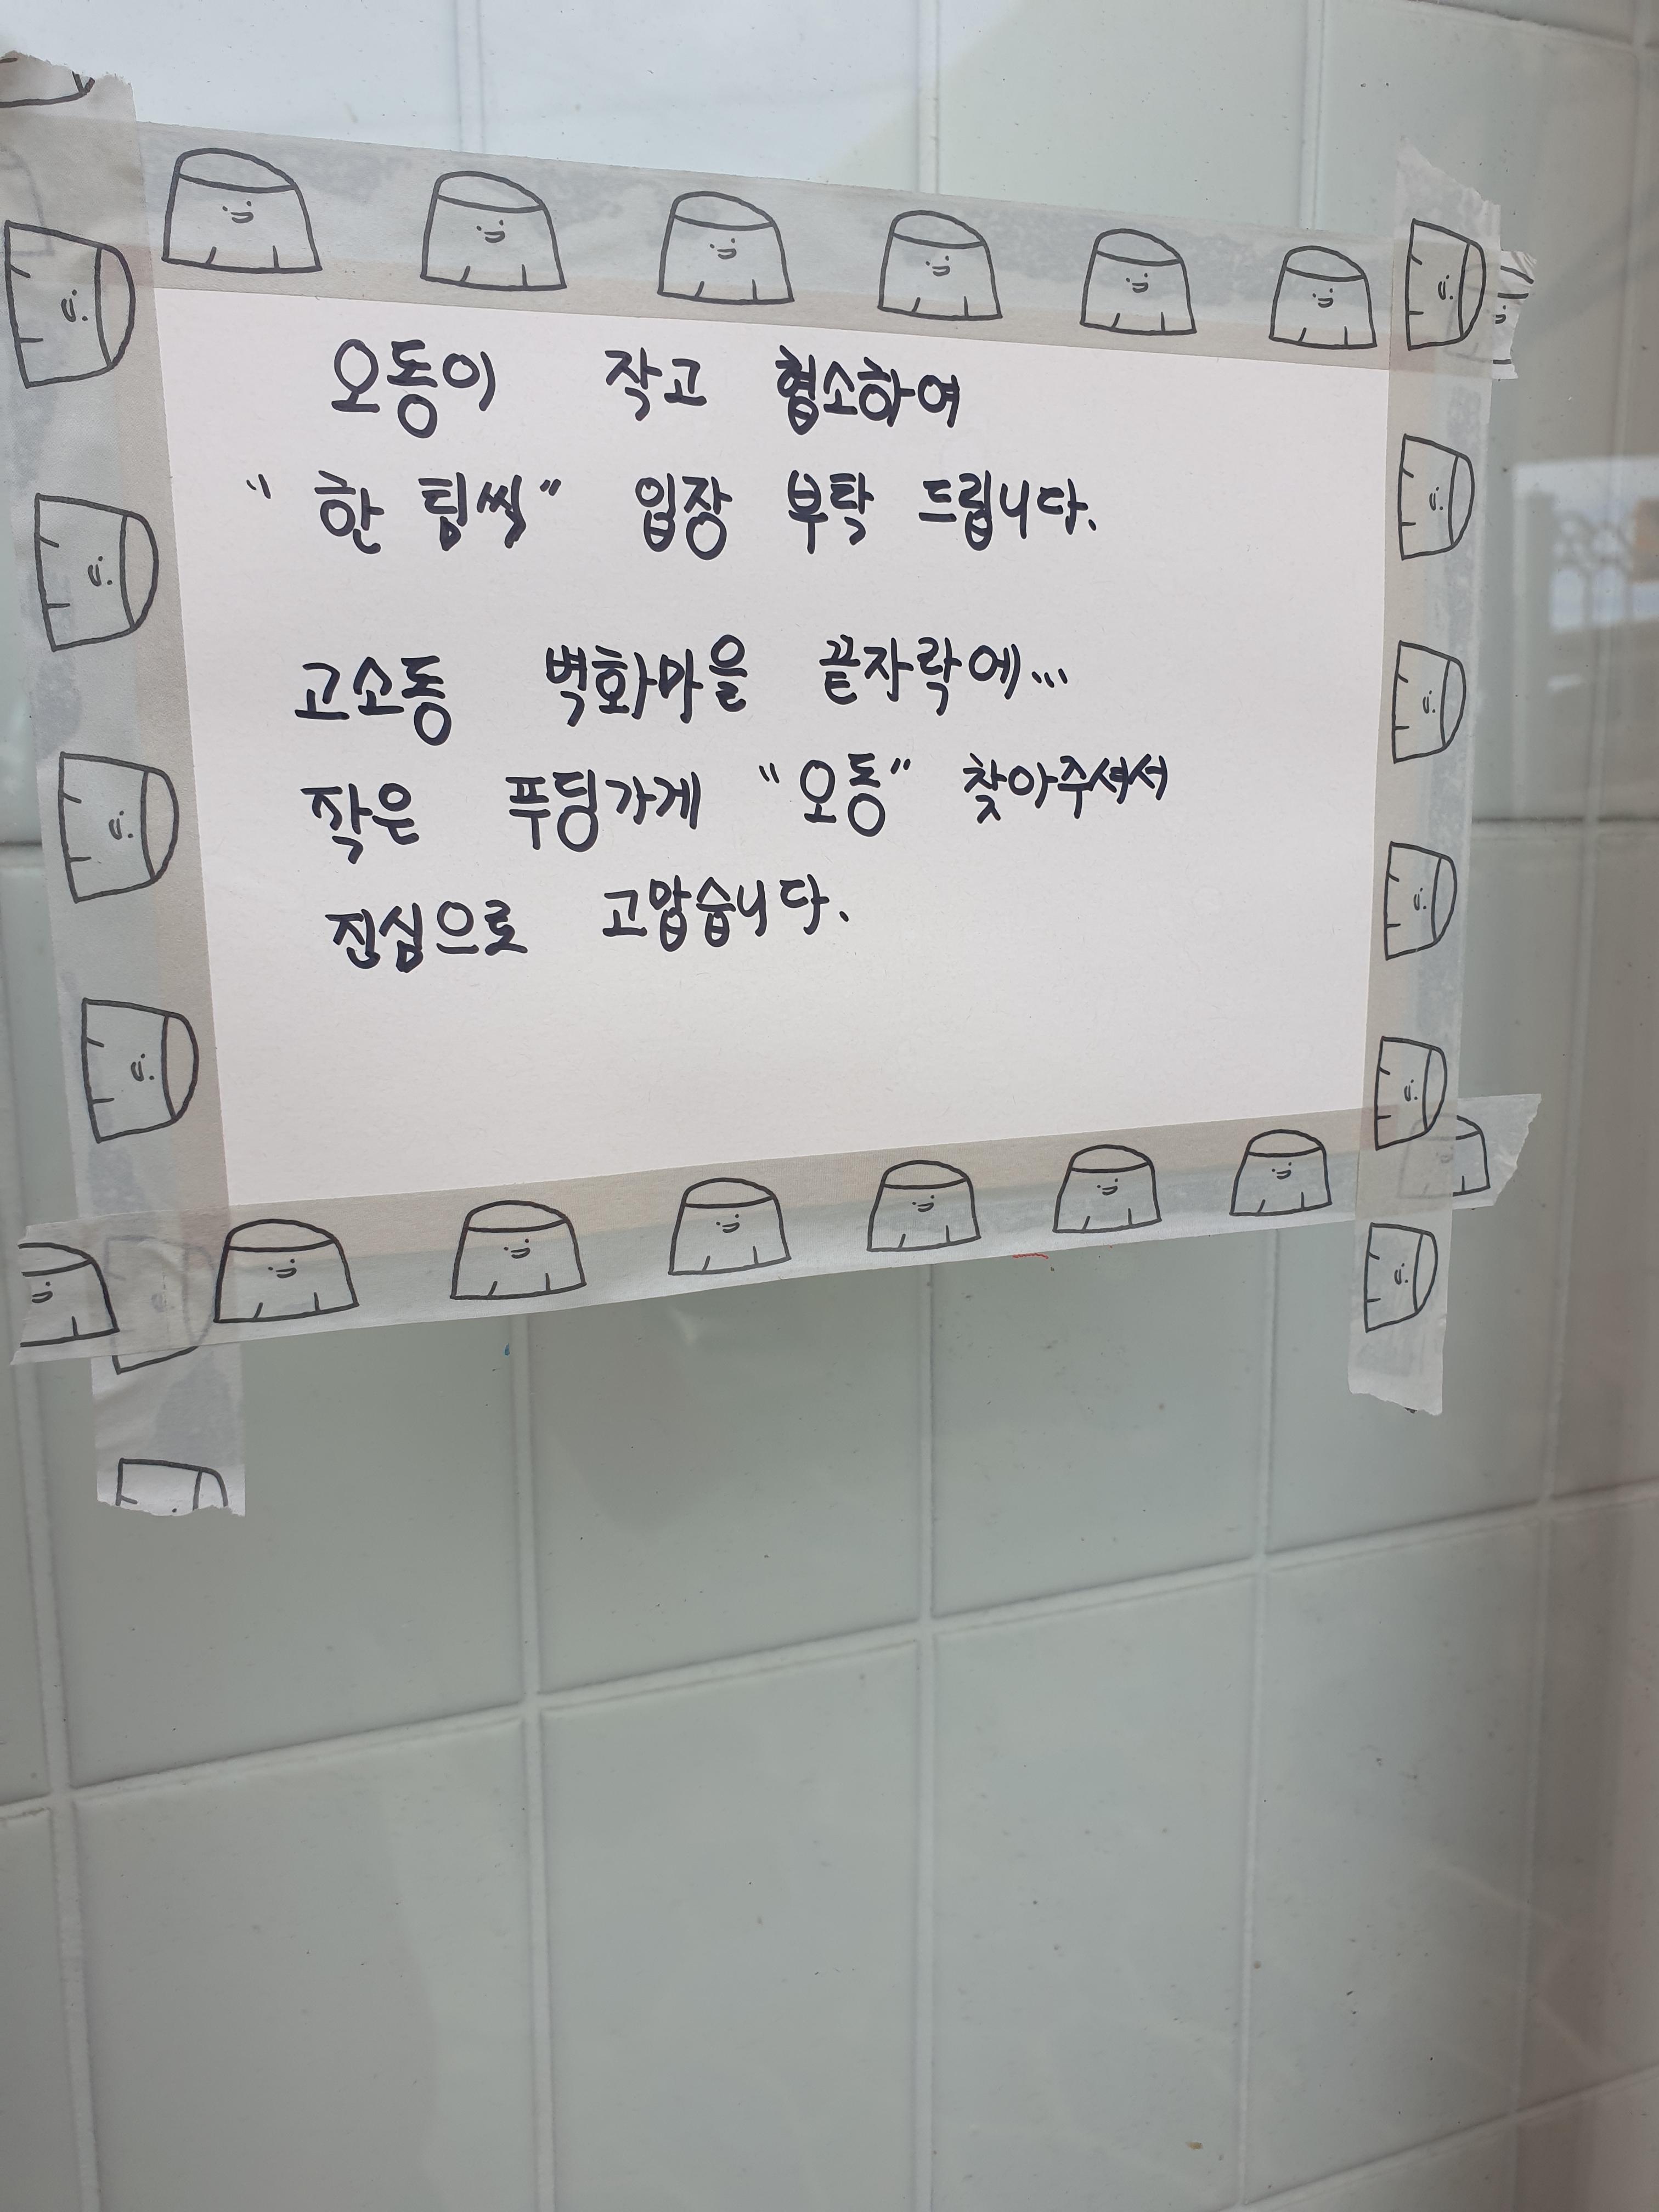 오동이 작고 협소하여
"한 팀씩" 입장 부탁 드립니다.
고소동 벽화마을 끝자락에...
작은 푸딩가게 "오동" 찾아주셔서
진심으로 고맙습니다.